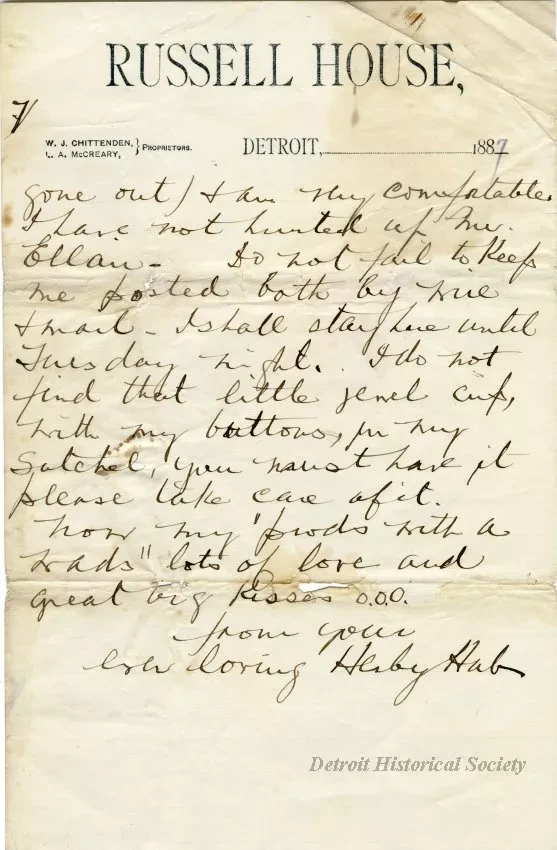 RUSSELL HOUSE,
7/
W. J. CHITTENDEN, } PROPRIETORS.
L. A. McCREARY,
DETROIT, 1887
gone out) I am very comfortable
I have not hunted up Mr.
Ellair - Do not fail to keep
me posted both by wire
& mail - I shall stay here until
Tuesday night. I do not
find that little jewel cup,
with my buttons, in my
Satchel, you must have it
please take care of it.
now my " with a
" lots of love and
great big kisses o.o.o.
from your
ever loving Hub
Detroit Historical Society